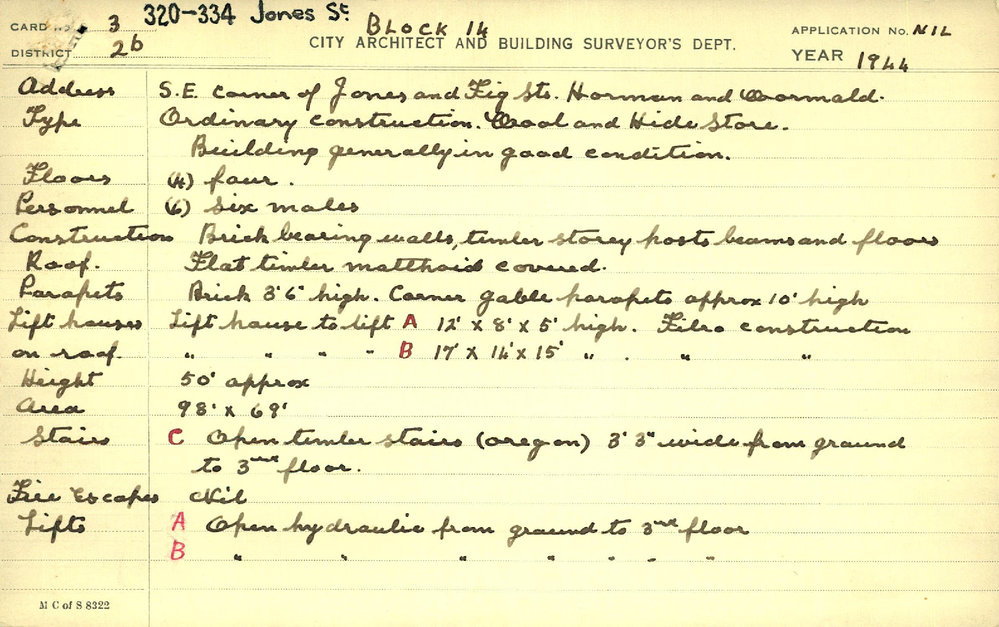 CARD No. 3 320-334 Jones St. BLOCK 14 APPLICATION No. NIL
DISTRICT 2b CITY ARCHITECT AND BUILDING SURVEYOR'S DEPT. YEAR 1944
Address S.E. corner of Jones and Fig Sts. Horman and Wormald.
Type Ordinary construction. Wool and Hide Store.
Building generally in good condition.
Floors (4) four.
Personnel (6) Six males
Construction Brick bearing walls, timber storey posts beams and floors
Roof. Flat timber malthoid covered.
Parapets Brick 3'6" high. Corner gable parapets approx 10' high
Lift houses Lift house to lift A 12' x 8' x 5' high. Fibro construction
on roof. " " " " B 17' x 14' x 15' " . " "
Height 50' approx
Area 98' x 69'
Stairs C Open timber stairs (oregon) 3'3" wide from ground
to 3rd floor.
Fire Escapes Nil
Lifts A Open hydraulic from ground to 3rd floor
B " " " " " " "
M C of S 8322